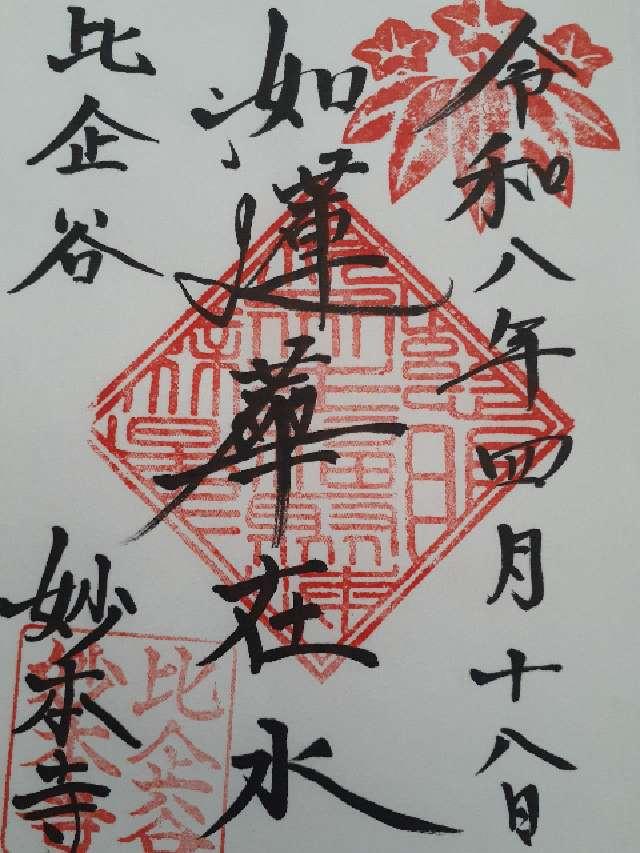 令和八年四月十八日
如蓮華在水
比企谷
妙本寺
比企谷
妙本寺